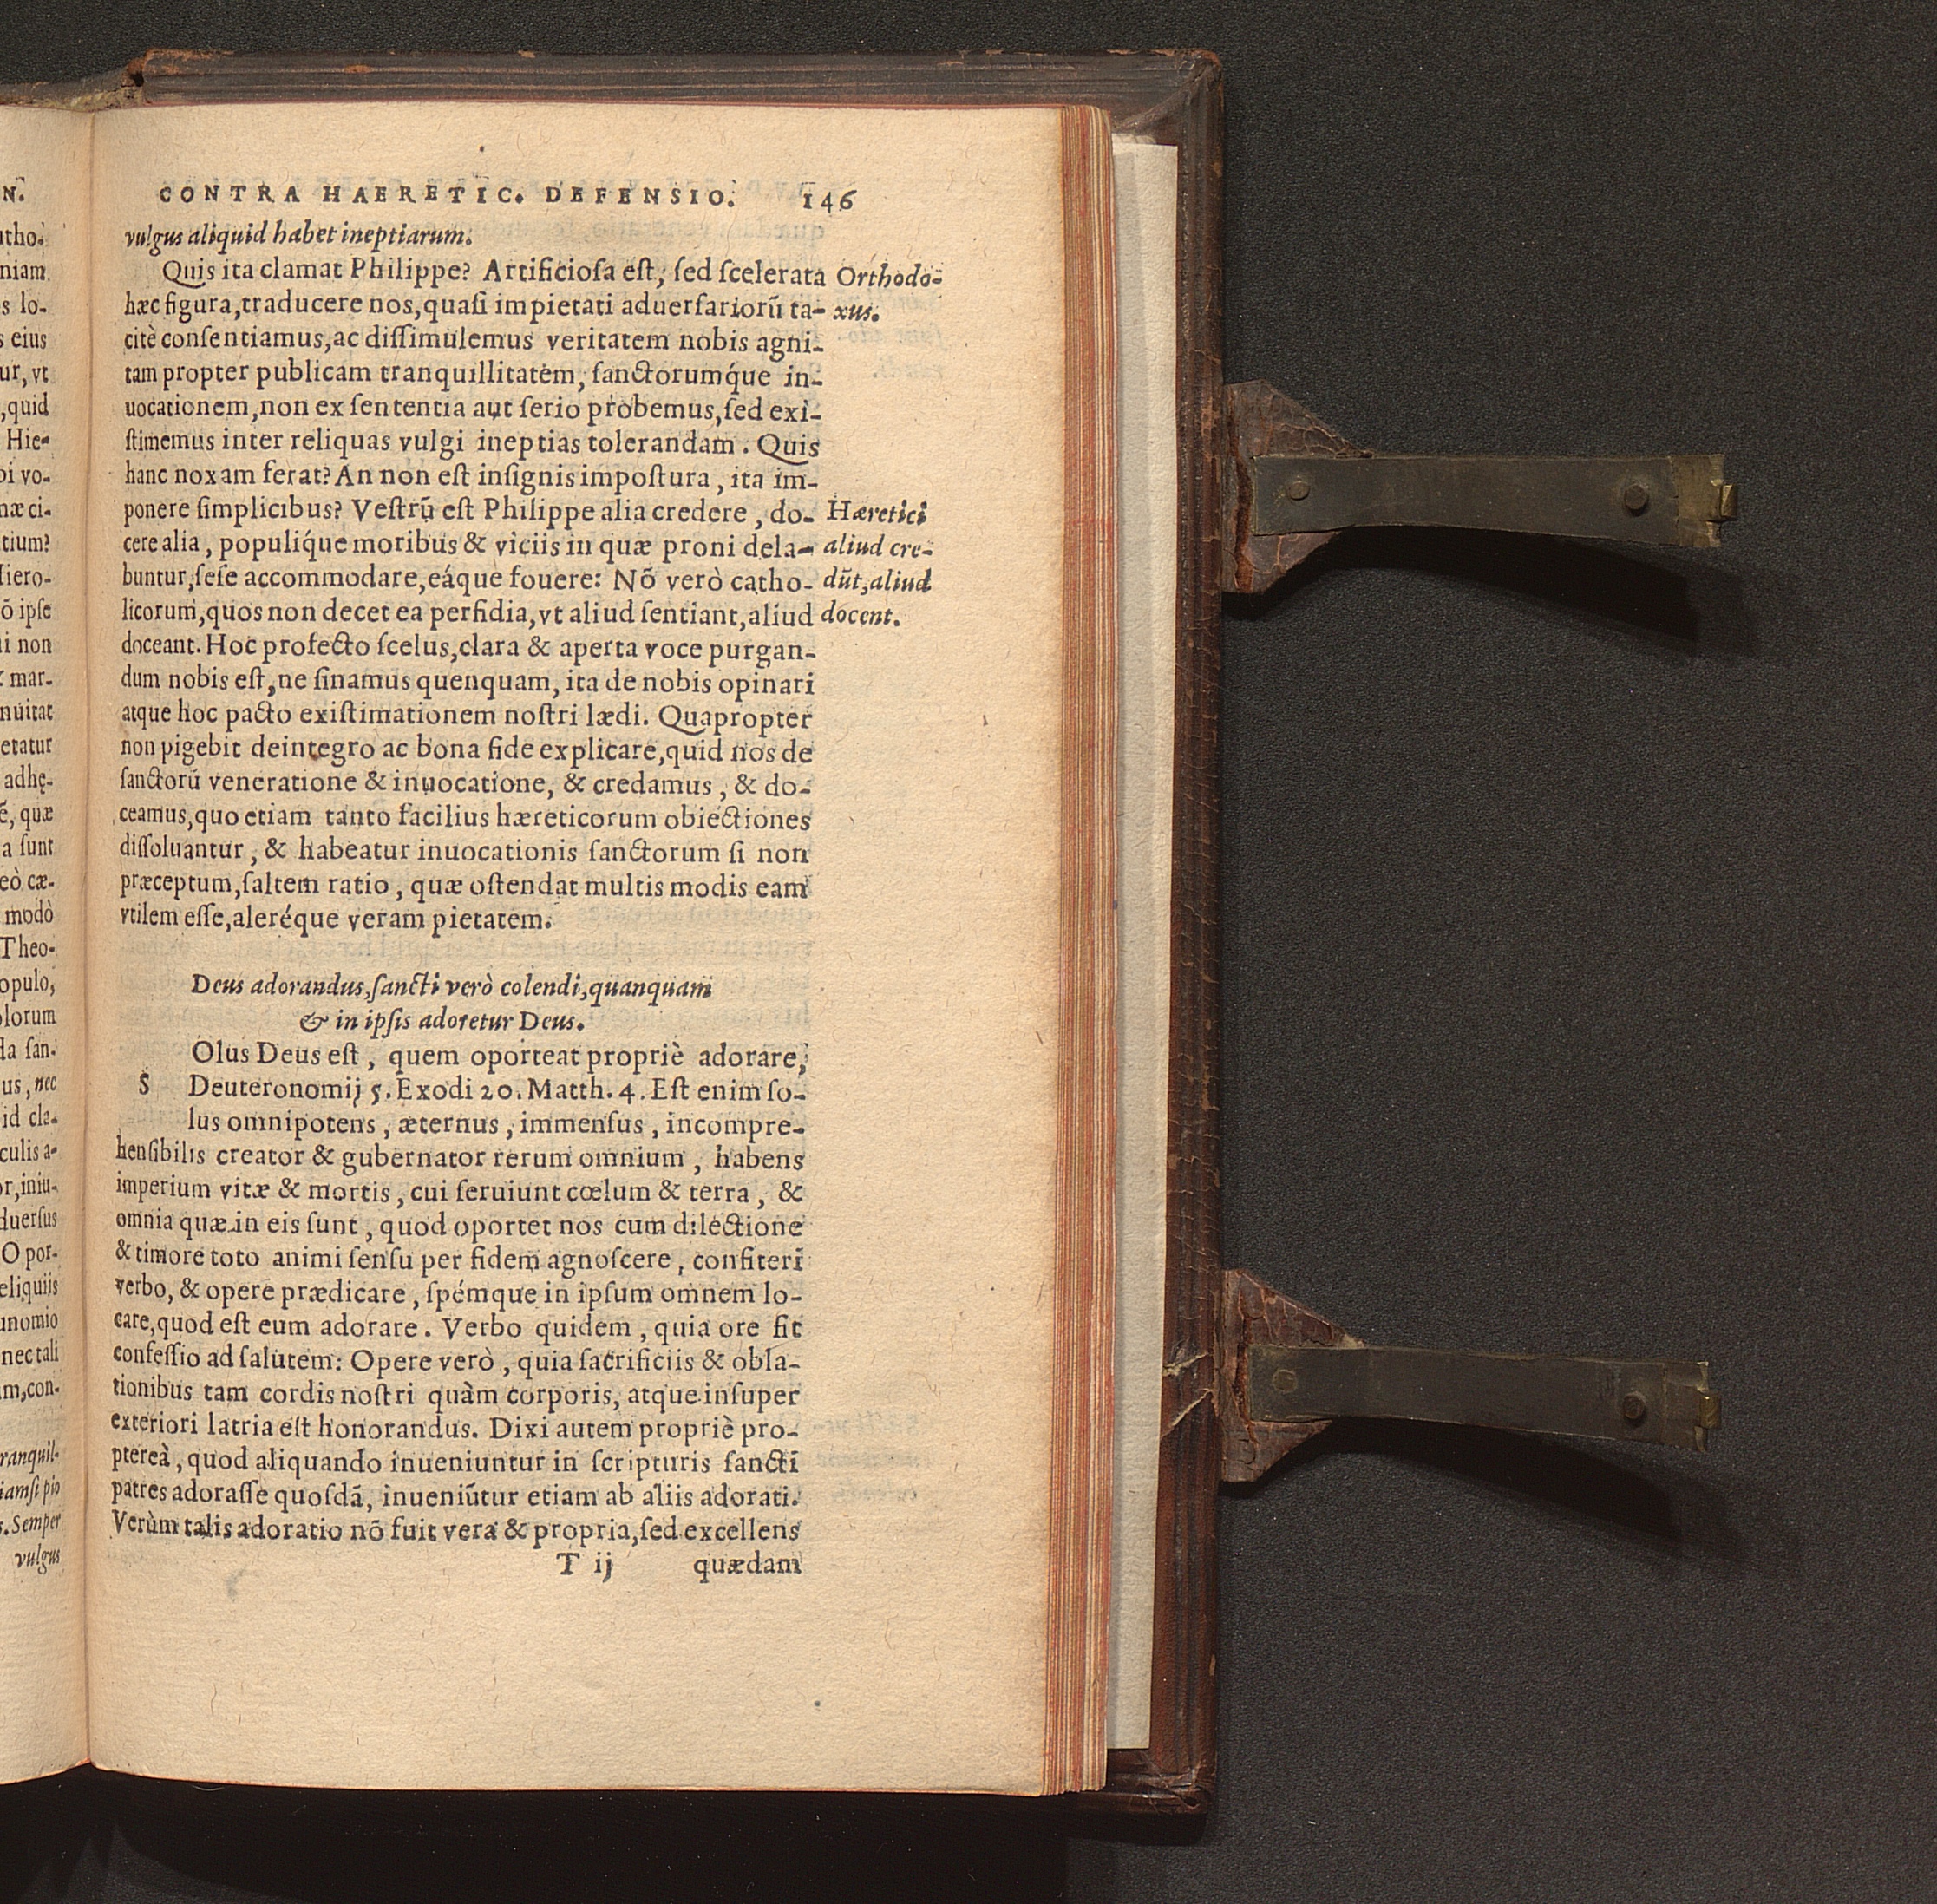 CONTRA HAERETIC. DEFENSIO. 146
vulgus aliquid habet ineptiarum.
Quis ita clamat Philippe? Artificiosa est, sed scelerata
hæc figura, traducere nos, quasi impietati aduersariorũ ta-
citè consentiamus, ac dissimulemus veritatem nobis agni-
tam propter publicam tranquillitatem, sanctorumq́ue in-
uocationem, non ex sententia aut serio probemus, sed exi-
stimemus inter reliquas vulgi ineptias tolerandam. Quis
hanc noxam ferat? An non est insignis impostura, ita im-
ponere simplicibus? Vestrũ est Philippe alia credere, do-
cere alia, populiq́ue moribus & viciis in quæ proni dela-
buntur, sese accommodare, eáque fouere: Nõ verò catho-
licorum, quos non decet ea perfidia, vt aliud sentiant, aliud
doceant. Hoc profecto scelus, clara & aperta voce purgan-
dum nobis est, ne sinamus quenquam, ita de nobis opinari
atque hoc pacto existimationem nostri lædi. Quapropter
non pigebit deintegro ac bona fide explicare, quid nos de
sanctorũ veneratione & inuocatione, & credamus, & do-
ceamus, quo etiam tanto facilius hæreticorum obiectiones
dissoluantur, & habeatur inuocationis sanctorum si non
præceptum, saltem ratio, quæ ostendat multis modis eam
vtilem esse, aleréque veram pietatem.
Orthodo-
xus.
Hæretici
aliud cre-
dũt, aliud
docent.
Deus adorandus, sancti verò colendi, quanquam
& in ipsis adoretur Deus.
SOlus Deus est, quem oporteat propriè adorare,
Deuteronomij 5. Exodi 20. Matth. 4. Est enim so-
lus omnipotens, æternus, immensus, incompre-
hensibilis creator & gubernator rerum omnium, habens
imperium vitæ & mortis, cui seruiunt cœlum & terra, &
omnia quæ in eis sunt, quod oportet nos cum dilectione
& timore toto animi sensu per fidem agnoscere, confiteri
verbo, & opere prædicare, spémque in ipsum omnem lo-
care, quod est eum adorare. Verbo quidem, quia ore fit
confessio ad salutem: Opere verò, quia sacrificiis & obla-
tionibus tam cordis nostri quàm corporis, atque insuper
exteriori latria est honorandus. Dixi autem propriè pro-
ptereà, quod aliquando inueniuntur in scripturis sancti
patres adorasse quosdã, inueniũtur etiam ab aliis adorati.
Verùm talis adoratio nõ fuit vera & propria, sed excellens
T ij quædam